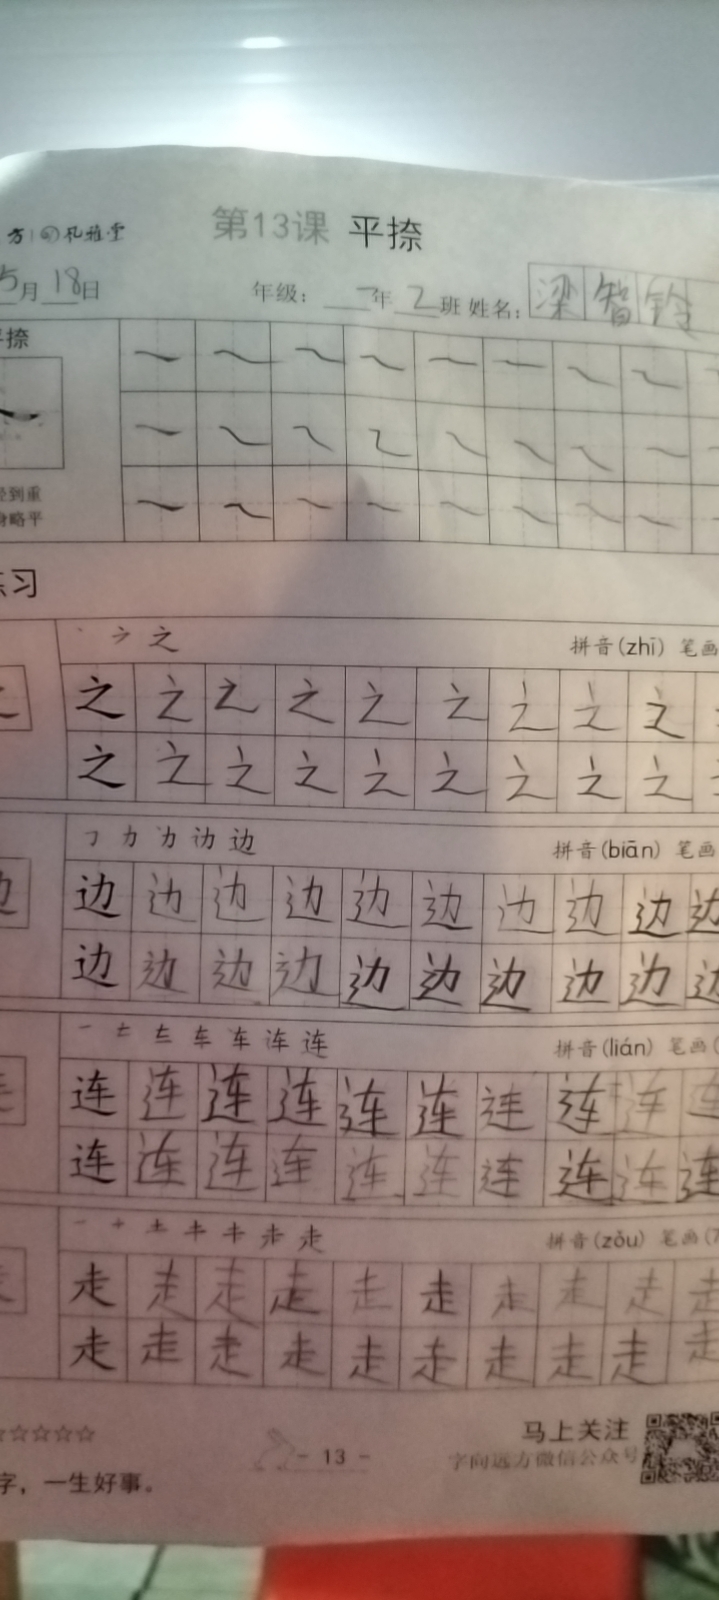 第13课 平捺
5月18日 年级：一年2班 姓名：梁智铃
平捺
轻到重
身略平
练习
丶 ㇇ 之 拼音(zhī) 笔画
之 之 之 之 之 之 之 之 之
之 之 之 之 之 之 之 之 之
㇆ 力 力 边 边 拼音(biān) 笔画
边 边 边 边 边 边 边 边 边 边
边 边 边 边 边 边 边 边 边 边
一 车 车 连 连 拼音(lián) 笔画(
连 连 连 连 连 连 连 连 连 连
连 连 连 连 连 连 连 连 连 连
一 十 土 走 拼音(zǒu) 笔画(7
走 走 走 走 走 走 走 走 走 走
走 走 走 走 走 走 走 走 走 走
☆☆☆☆☆ 马上关注
- 13 - 字向远方微信公众号
字，一生好事。